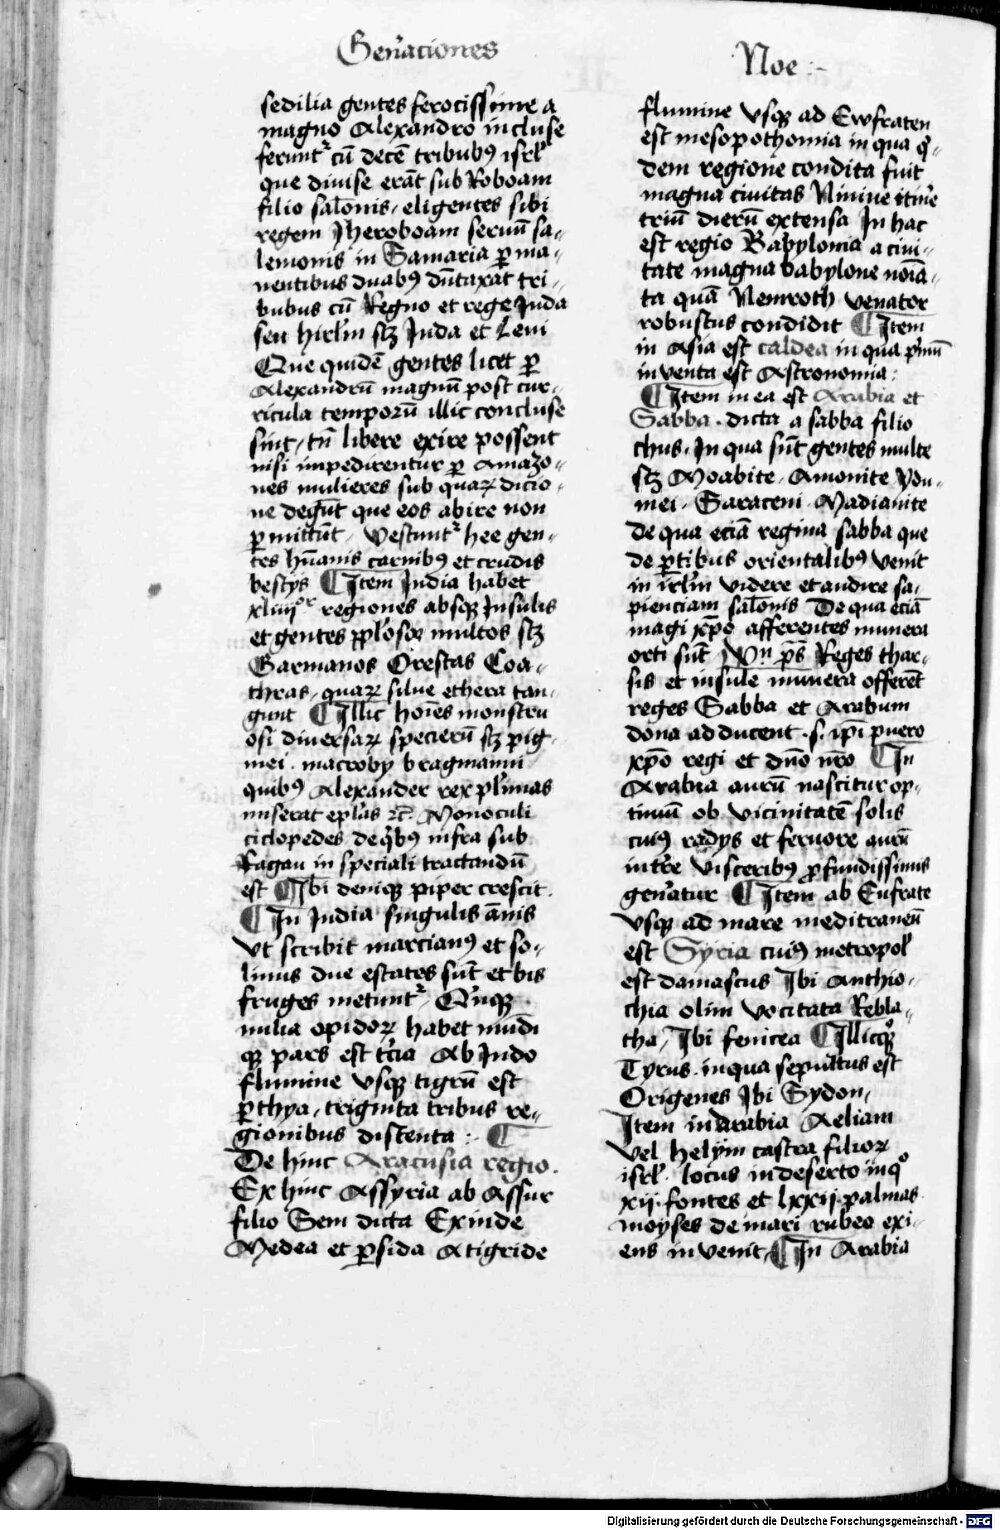 Gen̄aciones
Noe :~
sedilia gentes ferocissime a
magno Alexandro incluse
ferunt᷑ cū decē tribubꝰ isrl̄
que diuise erāt sub Roboam
filio salōnis, eligentes sibi
regem Jheroboam seruū sa-
lemonis in Samaria ꝑ ma-
nentibus duabꝰ dūtaxat tri-
bubus cū Regno et rege Juda
seu hirlm̄ scꝫ Juda et Leui
Que quidē gentes licet ꝑ
Alexandrū magnū post cur-
ricula temporū illic concluse
sint, tn̄ libere exire possent
nisi impedirentur ꝑ Amazo-
nes mulieres sub quaꝝ dicio-
ne degūt que eos abire non
ꝑmittūt, Vestunt᷑ hee gen-
tes hūanis carnibꝰ et crudis
bestijs ¶ Item India habet
xliiijᵒʳ regiones absqꝫ Insulis
et gentes pplōsoꝝ multos scꝫ
Garmanos Orestas Coa-
thras, quaꝝ silue ethera tan-
gunt ¶ Illic hoīes monstru
osi diuersaꝝ specierū scꝫ pig-
mei . macrobij bragmanni
quibꝰ Alexander rex pl̄imas
miserat epl̄as ⁊c̄. Monoculi
ciclopedes de qͥbꝰ infra sub
Ragau in speciali tractandū
est ¶ Ibi deniqꝫ piper crescit .
¶ In India singulis ānis
vt scribit marcianꝰ et so-
linus due estates sūt et bis
fruges metunt᷑, Qͥnqꝫ
milia opidoꝝ habet mūdi
qꝫ pars est tc̄ia Ab Indo
flumine vsqꝫ tigrū est
ꝑthya, triginta tribus re-
gionibus distenta : ¶
De hinc Aracusia regio .
Ex hinc Assyria ab Assur
filio Sem dicta Exinde
Medea et ꝑsida A tigride
flumine vsqꝫ ad Ewfraten
est mesopothomia in qua qͥ-
dem regione condita fuit
magna ciuitas Niniue itin̄e
triū dierū extensa In hac
est regio Babylonia a ciui-
tate magna babylone noīa-
ta quā Nemroth venator
robustus condidit ¶ Item
in Asia est caldea in qua pͥmū
inventa est Astronomia :
¶ Item in ea est Arabia et
Sabba . dicta a sabba filio
chus. In qua sūt gentes multe
scꝫ Moabite . Amonite ydu-
mei . Saraceni . Madianite
de qua eciā regina sabba que
de ꝑtibus orientalibꝰ venit
in irl̄m videre et audire sa-
pienciam salōnis De qua eciā
magi xp̄o afferentes munera
orti sūt Vn̄ ps̄ Reges thar-
sis et insule munera offerēt
reges Sabba et Arabum
dona adducent . s. ip̄i puero
xp̄o regi et dn̄o nr̄o ¶ In
Arabia aurū nascitur op-
timū ob vicinitatē solis
cuiꝰ radijs et feruore aurū
in tr̄e visceribꝰ ꝓfundissimis
gen̄atur ¶ Item ab Eufrate
vsqꝫ ad mare meditraneū
est Syria cuiꝰ metropol̄
est damascus Ibi Anthio-
chia olim vocitata Rebla-
tha, Ibi fenicea ¶ Illicqꝫ
Tyrus . in qua sepultus est
Origenes Ibi Sydon,
Item in Arabia Aeliam
vel helym castra filioꝝ
isrl̄ . locus in deserto in qͦ
xij . fontes et lxxij . palmas
moyses de mari rubeo exi-
ens invenit, ¶ In Arabia
Digitalisierung gefördert durch die Deutsche Forschungsgemeinschaft - DFG